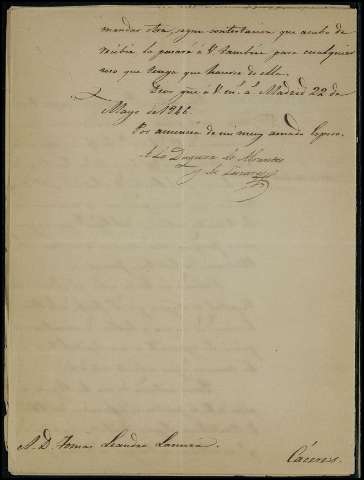 mandar otra, cuya contestacion que acabo de
recibir la pasaré á V. tambien para cualquier
uso que tenga que hacerse de ella.
Dios gue á V. ms. as. Madrid 22 de
Mayo de 1866.
Por ausencia de mi muy amado Esposo.
La Duquesa de Abrantes
y de Linares
A. D. Tomas Leandro
Cáceres.